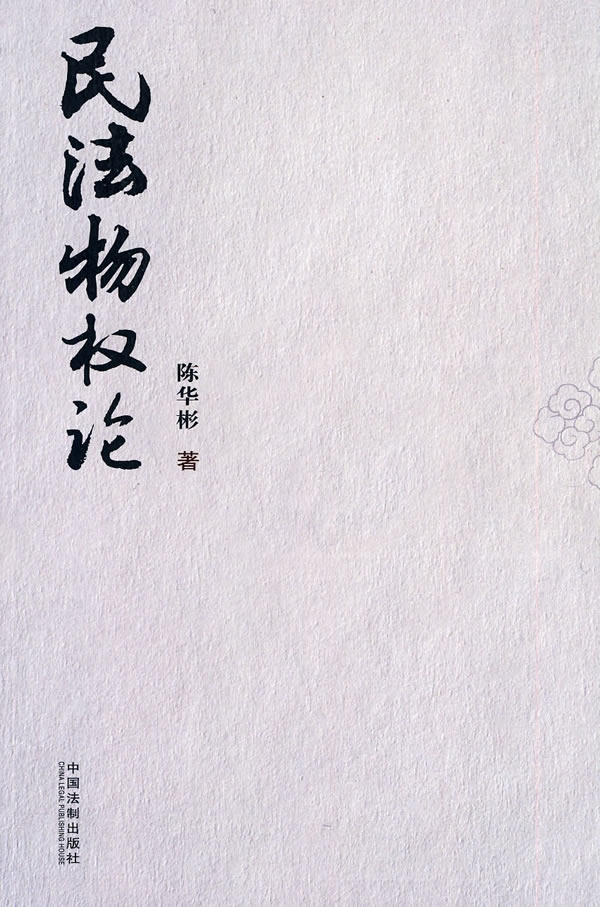 民法物权论
陈华彬 著
中国法制出版社
CHINA LEGAL PUBLISHING HOUSE